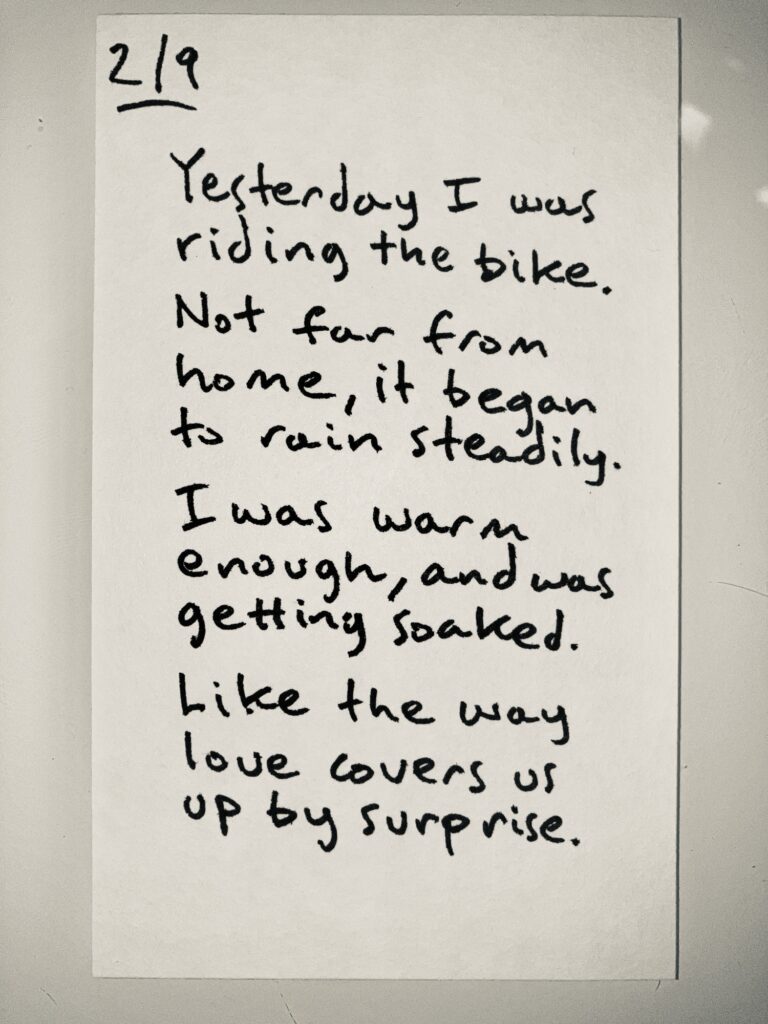 2/9
Yesterday I was
riding the bike.
Not far from
home, it began
to rain steadily.
I was warm
enough, and was
getting soaked.
Like the way
love covers us
up by surprise.